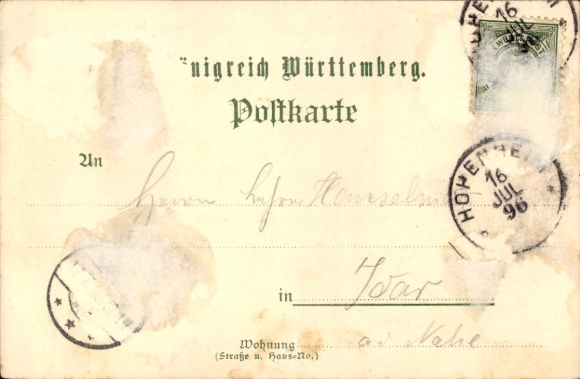 HOHENHEIM
16
JUL
96
nigreich Württemberg.
Postkarte
HOHENHEIM
16
JUL
96
An
Herrn Lehrer
in Idar
Wohnung a. d. Nahe
(Straße u. Haus-No.)